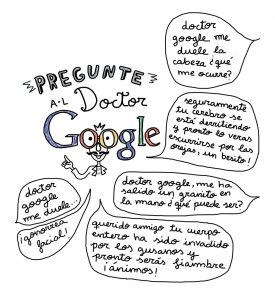 PREGUNTE
A·L Doctor
Google
doctor
google me
duele la
cabeza ¿qué
me ocurre?
seguramente
tu cerebro se
está derritiendo
y pronto lo verás
escurrirse por las
orejas, un besito!
doctor google, me ha
salido un granito en
la mano ¿qué puede ser?
doctor
google
me duele...
¡gonorrea
facial!
querido amigo tu cuerpo
entero ha sido invadido
por los gusanos y
pronto serás fiambre
¡ánimos!